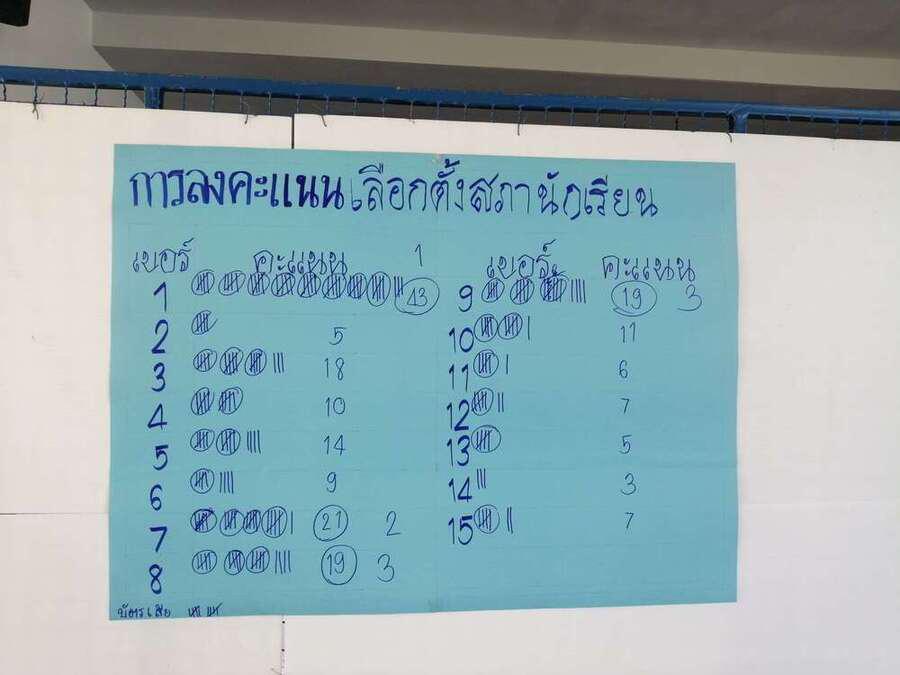 การลงคะแนนเลือกตั้งสภานักเรียน
เบอร์ คะแนน 1
1 43
2 5
3 18
4 10
5 14
6 9
7 21 2
8 19 3
บัตรเสีย
เบอร์ คะแนน
9 19 3
10 11
11 6
12 7
13 5
14 3
15 7